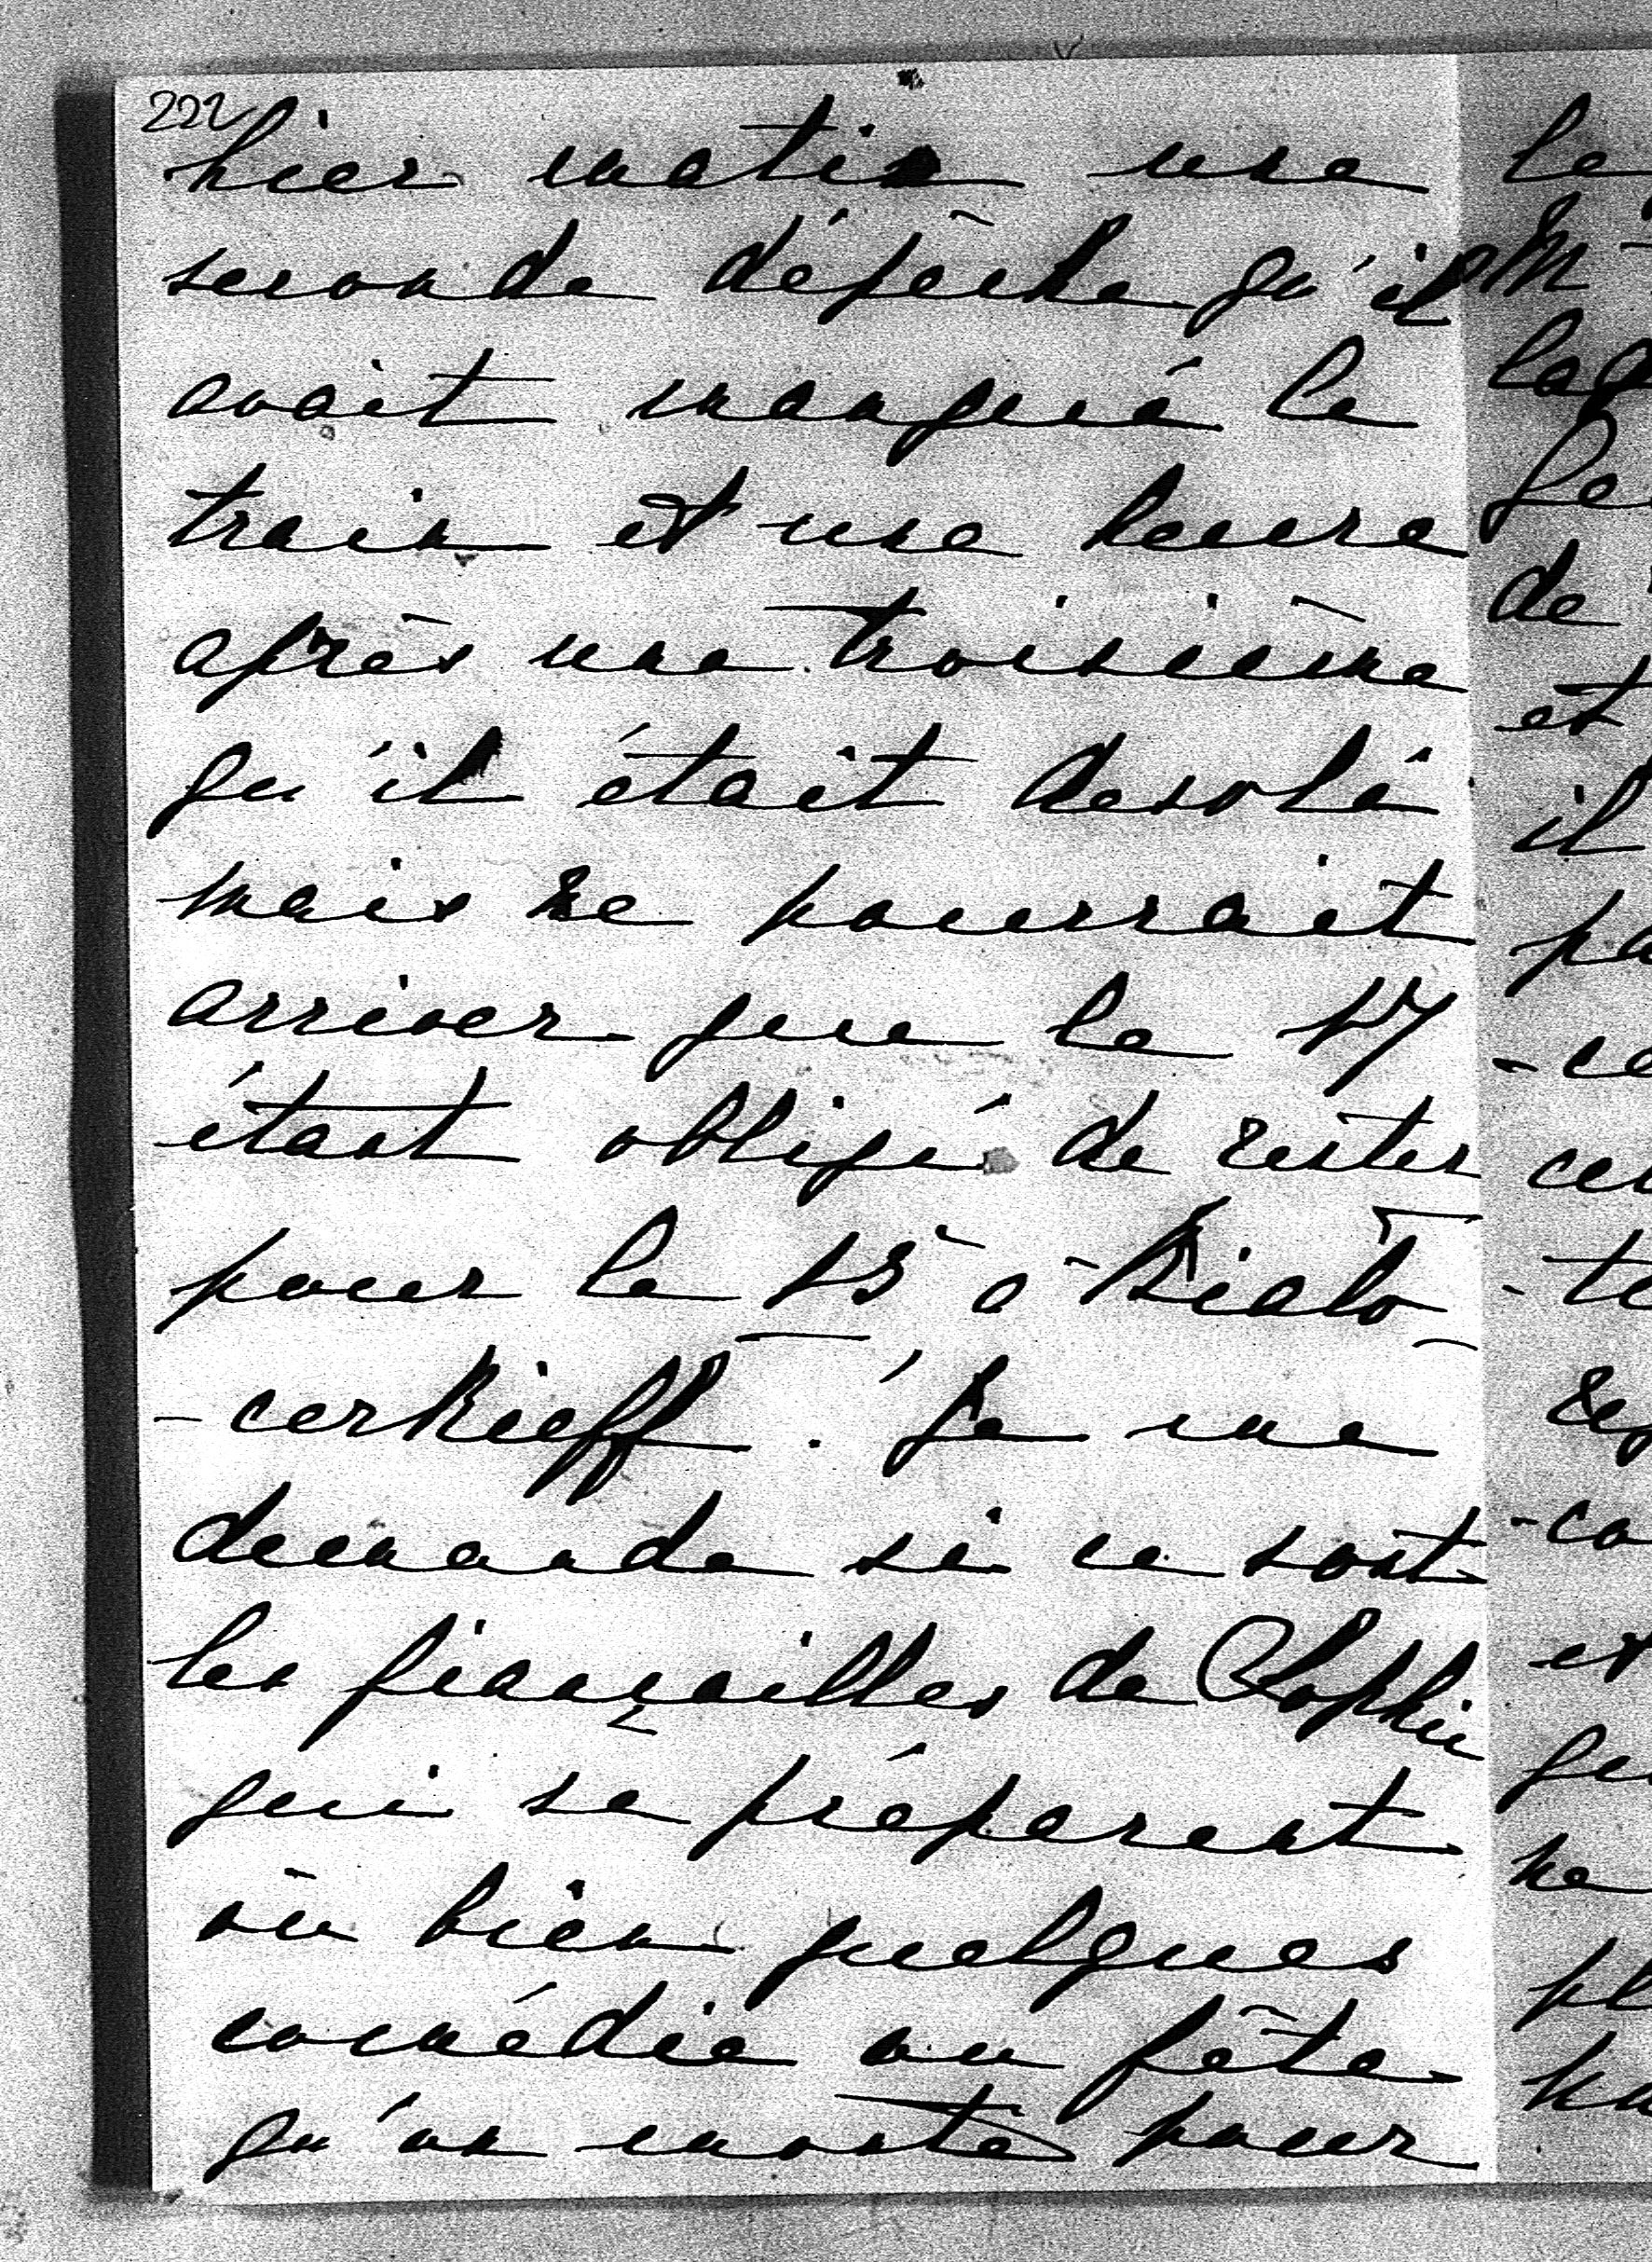 222
hier matin une
seconde dépêche qu'il
avait manqué le
train et une heure
après une troisième
qu'il était desolé
mais ne pourrait
arriver que le 17
étant obligé de rester
pour le 15 à Bialo
-cerkieff. Je me
demande si ce sont
les fiançailles de Sophie
qui se préparent
où bien quelques
comédie ou fête
qu'on monte pour
le
M
de
et
il